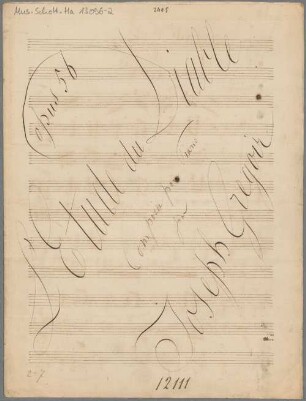 Mus. Schott. Ha 13056-2
opus 56
L'Etude du Diable
Composée pour Piano
par
Joseph Gregoir
2-7
12111